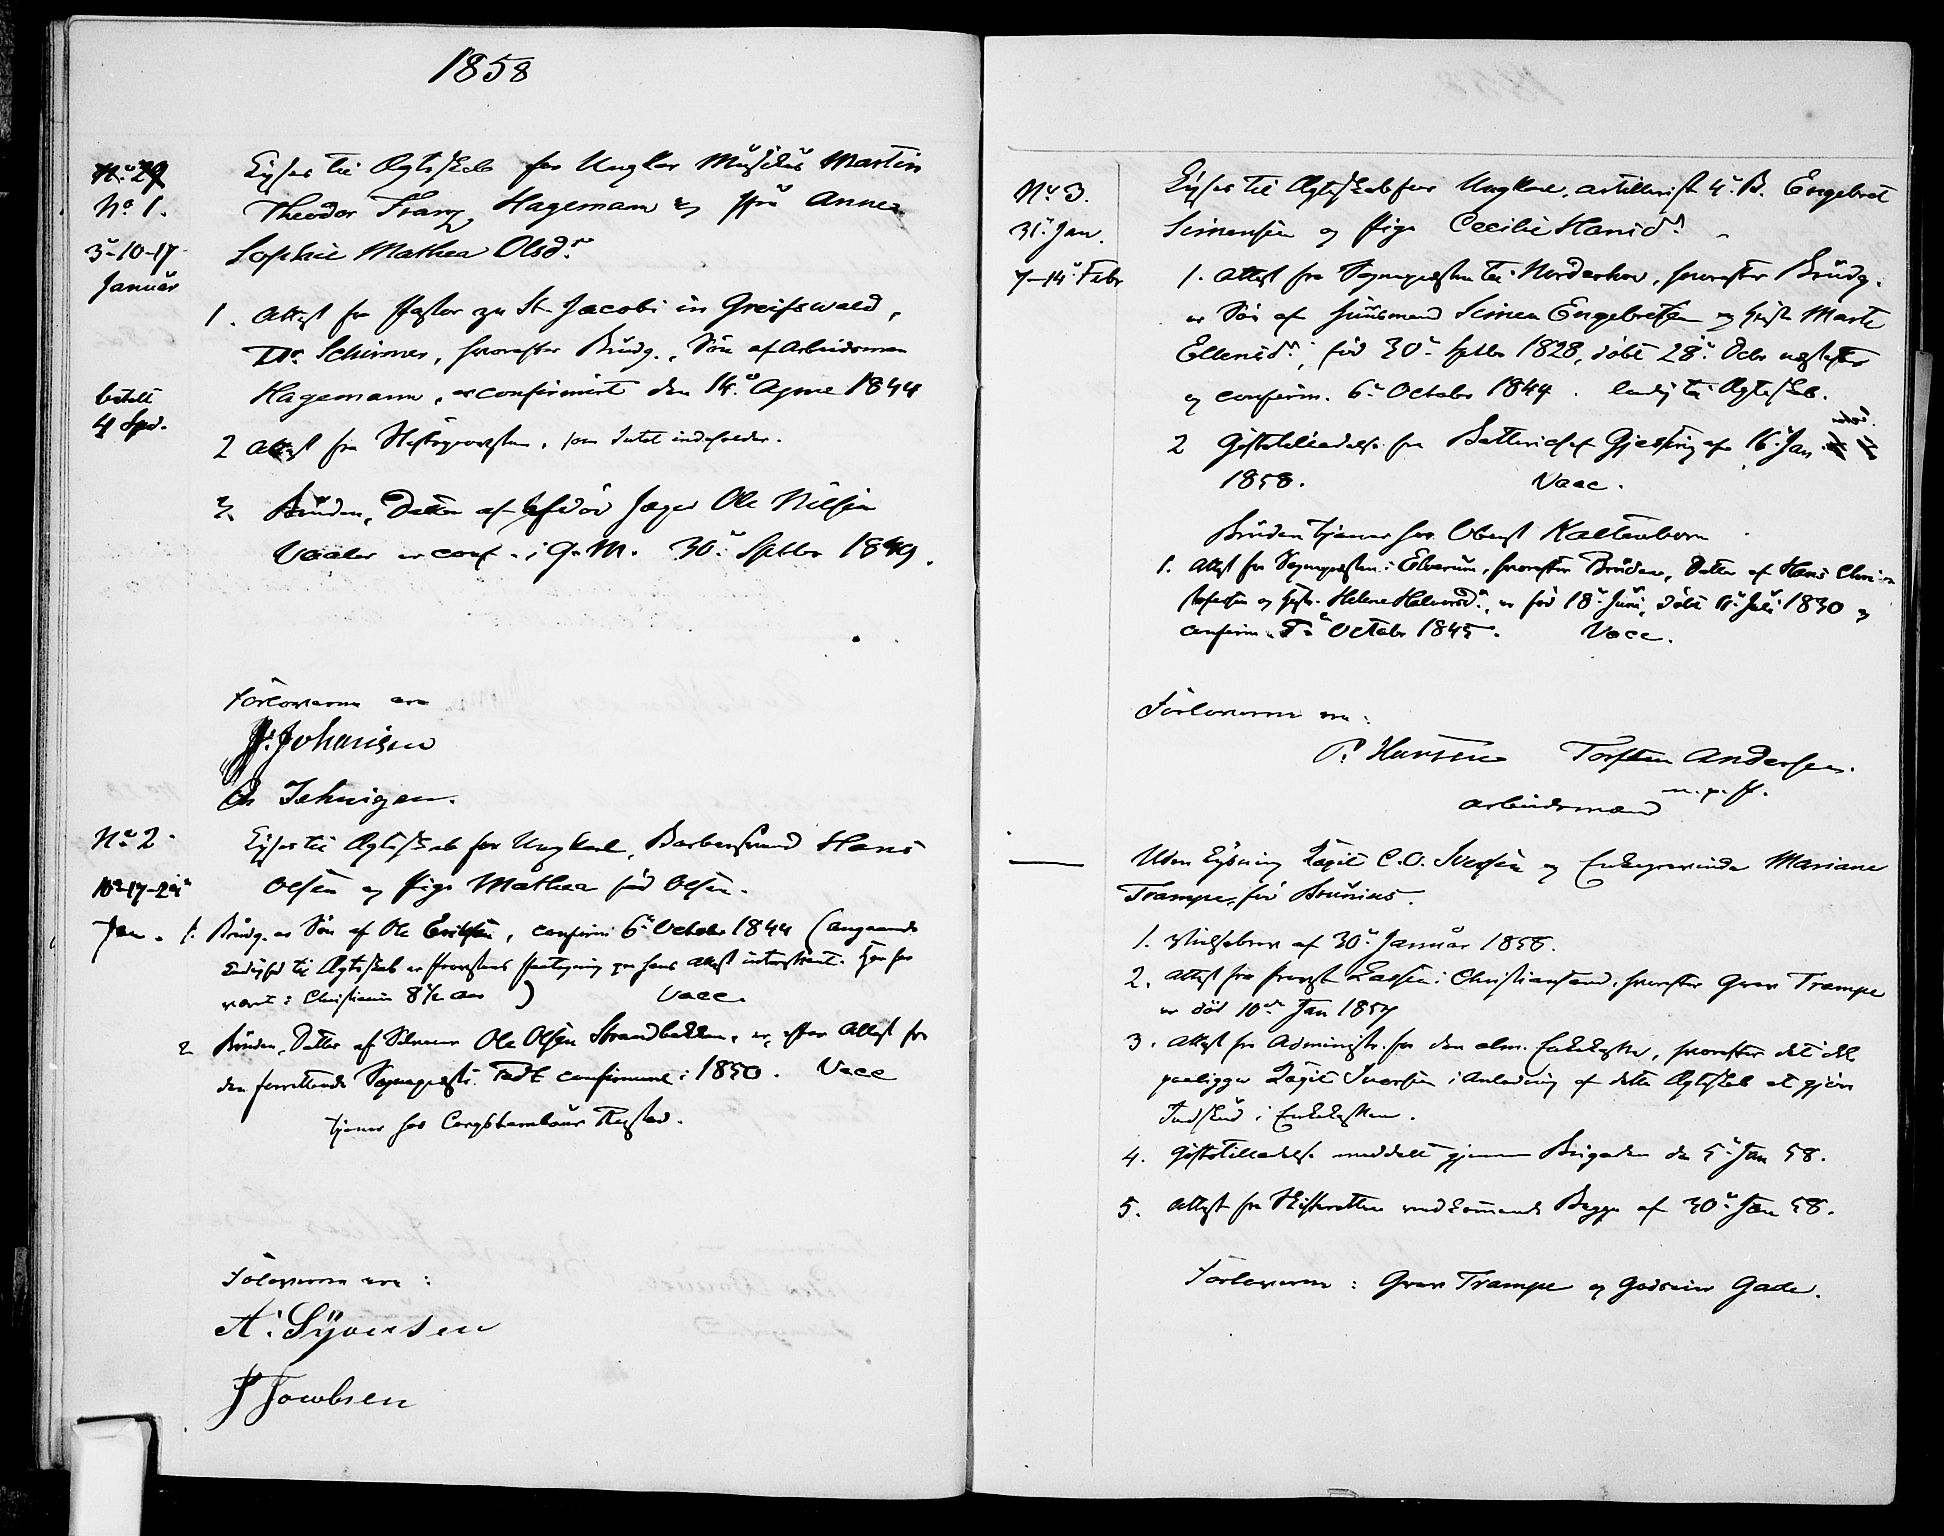 1858
No 29
No 1.
3-10-17
Januar
Lyses til Ægteskab for Ungkar Musikus Martin
Theodor Franz Hagemann og Anne
Sophie Mathea Olsd.
1. Attest fra Pastor zu St Jacobi in Greifswald,
Dr. Schirmer, hvorefter Brudg., Søn af Arbeidsman
Hagemann, er confirmirt den 14. 1844
betalt
4 Spd.
2 Attest fra som Intet indeholder.
3. Bruden, Datter af afdød Jæger Ole Nilsen
Vaaler er conf. i G. M. 30. Septbr 1849.
Forloverne ere
Johansen
No 2.
10-17-24
Jan.
Lyses til Ægteskab for Ungkarl, Barbersvend Hans
Olsen og Pige Mathea fød Olsen.
1. Brudg. er Søn af Ole Eriksen, confirm 6 Octobr 1844 (angaaende
Ledighed til Ægteskab er Provstens paa hans Attest Han har
været i Christiania 8½ Aar) Vacc.
2. Bruden, Datter af Ole Olsen Strandbakken, er, efter Attest fra
den forrettende Sognepræst confirmeret i 1850. Vacc
tjener hos
Forloverne ere:
A. Syversen
Jacobsen
No 3.
31. Jan.
7-14 Febr
Lyses til Ægteskab for Ungkarl, Artillerist 4. B. Engebret
Simensen og Pige Cecilie Hansd.
1. Attest fra Sognepræsten til Norderhov, hvorefter Brudg.
er Søn af Huusmand Simen Engebretsen og Hustru Marte
Ellensd., fød 30 Septbr 1828, døbt 28. Octbr næstefter
og confirm. 6. October 1844. ledig til Ægteskab.
2 Giftetilladelse fra Batterichef Gjessing af 16. Jan
1858. Vacc.
Bruden tjener hos Oberst Kaltenborn
1. Attest fra Sognepræsten i Elverum, hvorefter Bruden, Datter af Hans Chri-
stofersen og Hustr. Helene Halvorsd., er fød 18. Juni, døbt 11. Juli 1830 og
confirm. 5. Octobr 1845. Vacc.
Forloverne ere:
P. Hansen Torsten Andersen
m. p. P.
Arbeidsmænd
Uden Lysning Capit C. O. Iversen og Enkegrevinde Mariane
Trampe, fød Brunius.
1. Vielsebrev af 30. Januar 1858.
2. Attest fra Provst Lassen i Christiansand, hvorefter Grev Trampe
er død 10de Jan 1857
3. Attest fra Administr. for den alm. Enkekasse, hvorefter det
paaligger Capit Iversen i Anledning af dette Ægteskab at gjøre
Indskud i Enkekassen.
4. Giftetilladelse meddelt gjennem Brigaden d. 5. Jan 58.
5. Attest fra Skifteretten vedkommende Begge af 30. Jan 58.
Forloverne: Grev Trampe og Godseier Gade.